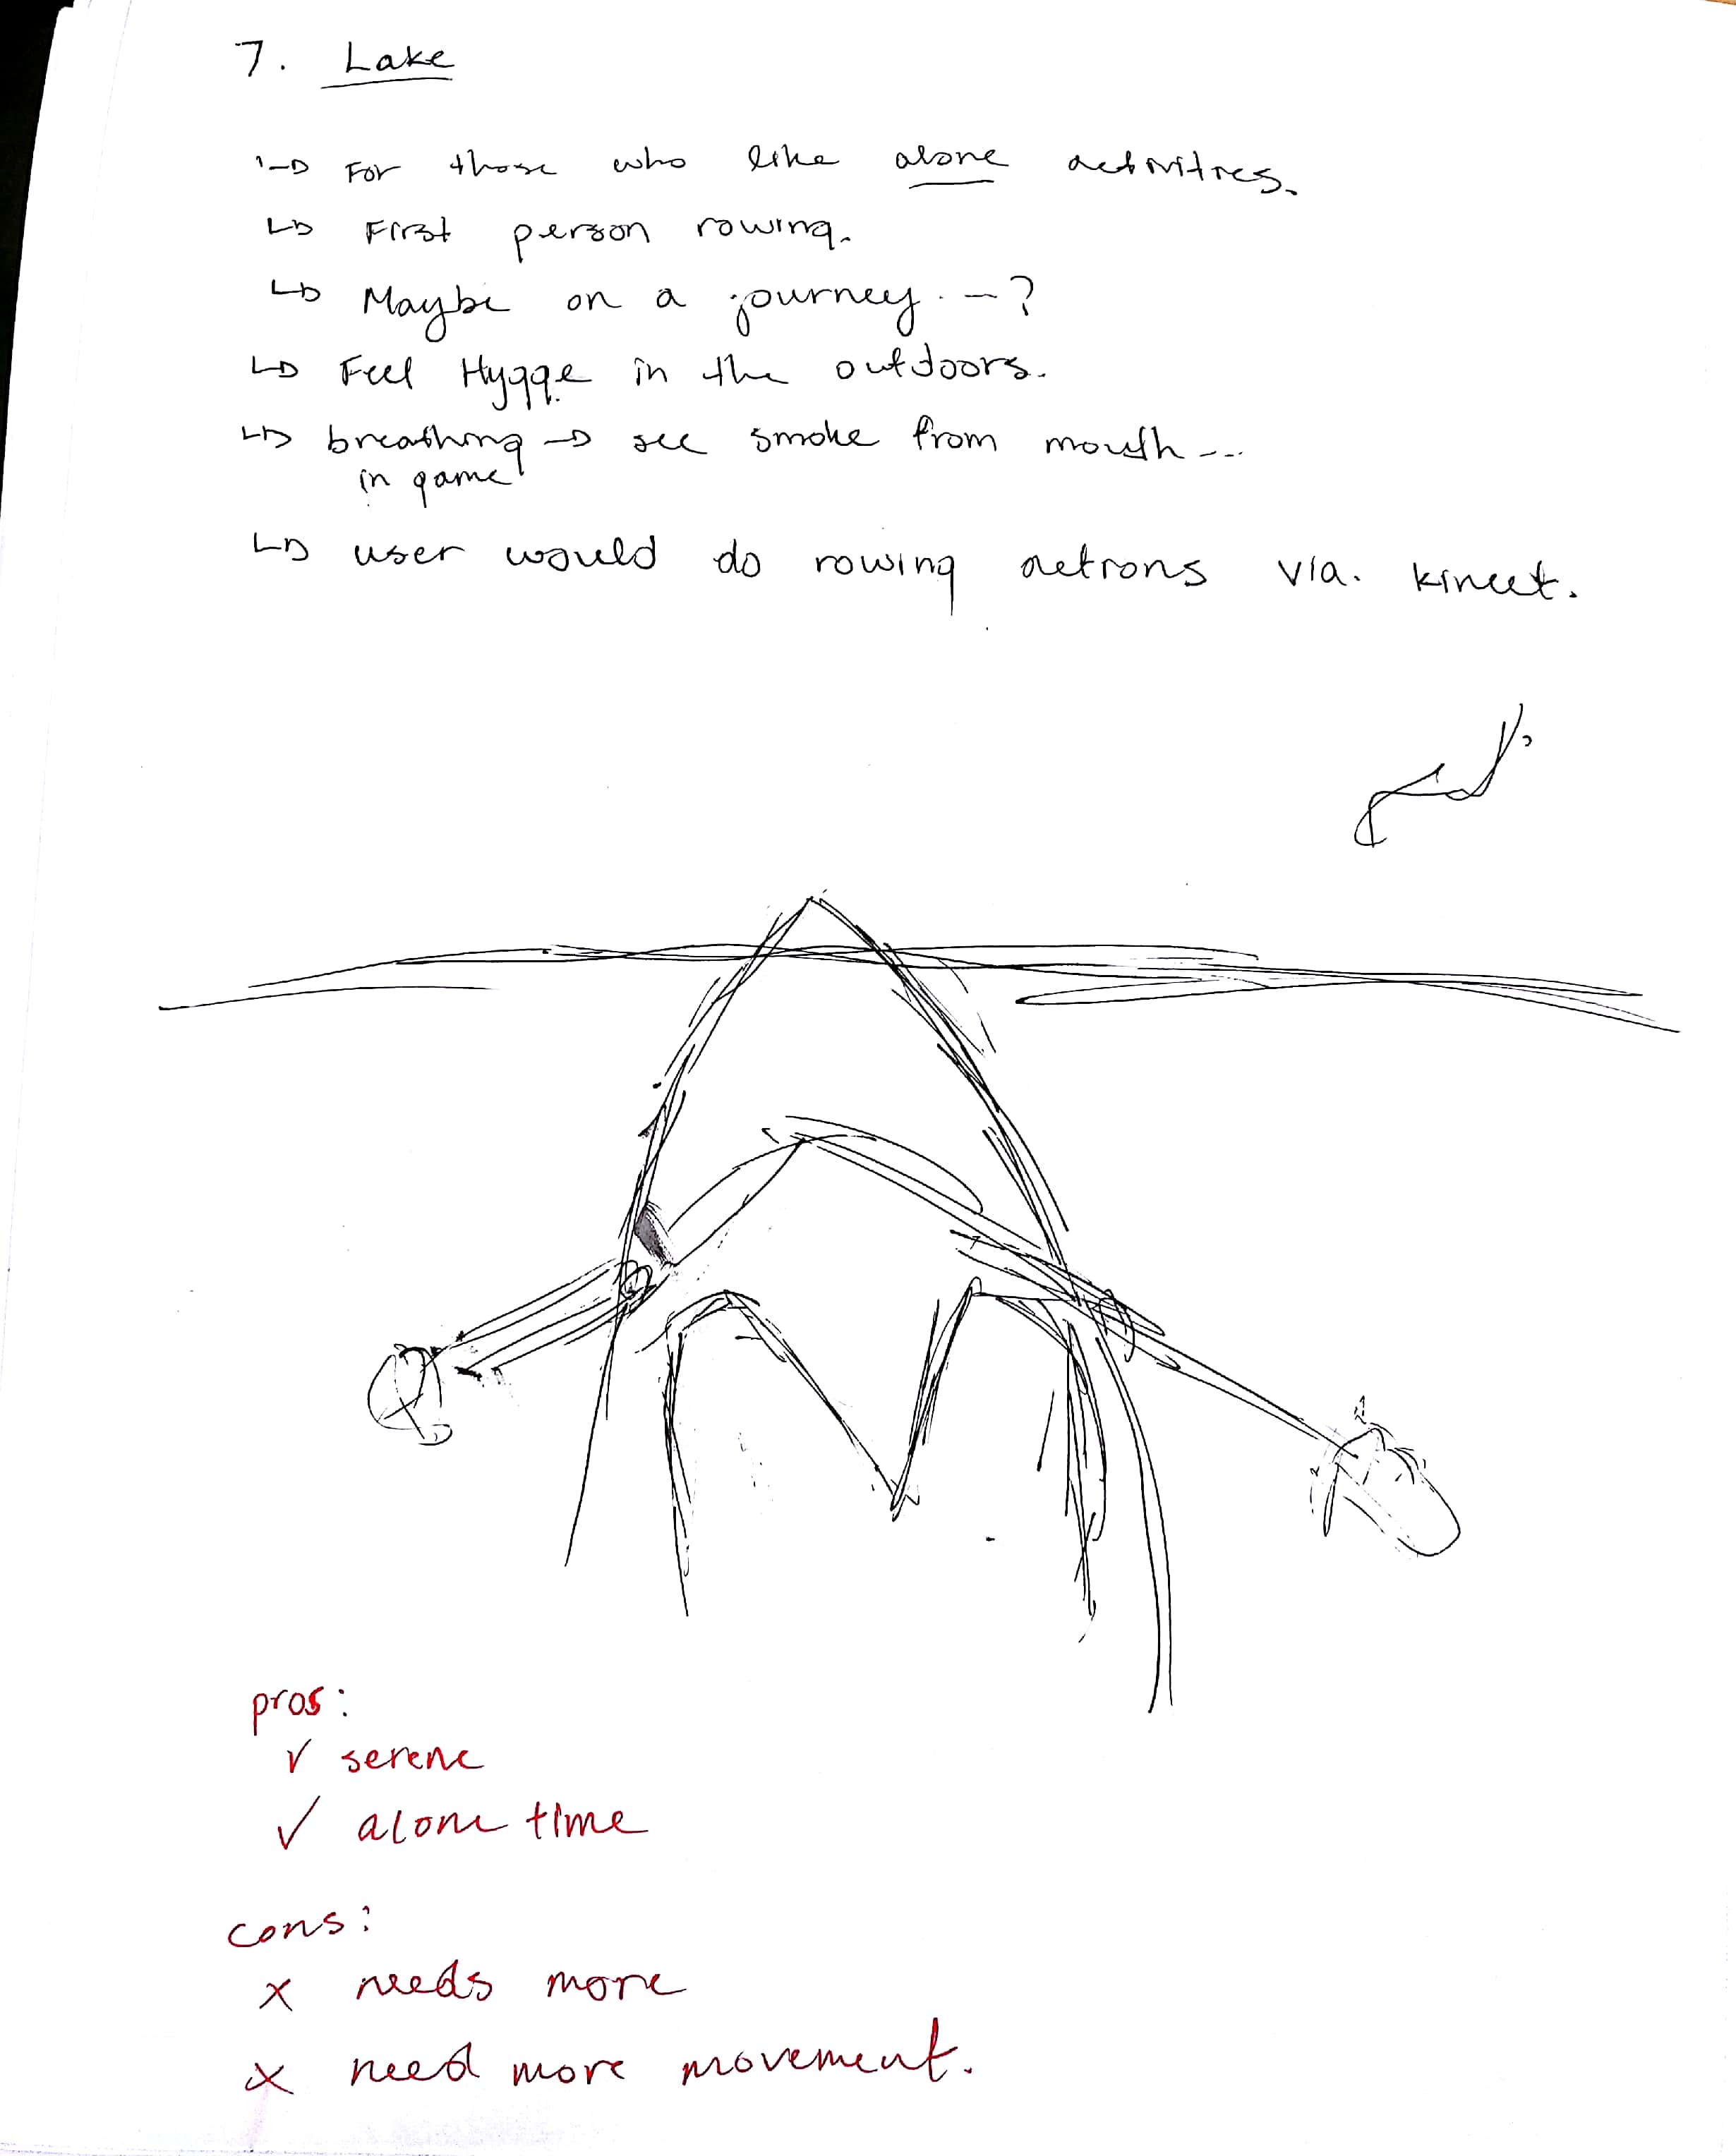 7. Lake
For those who like alone activities.
First person rowing.
Maybe on a journey. - ?
Feel Hygge in the outdoors.
breathing → see smoke from mouth ...
in game
user would do rowing actions via. kinect.
pros:
✓ serene
✓ alone time
cons:
x needs more
x need more movement.